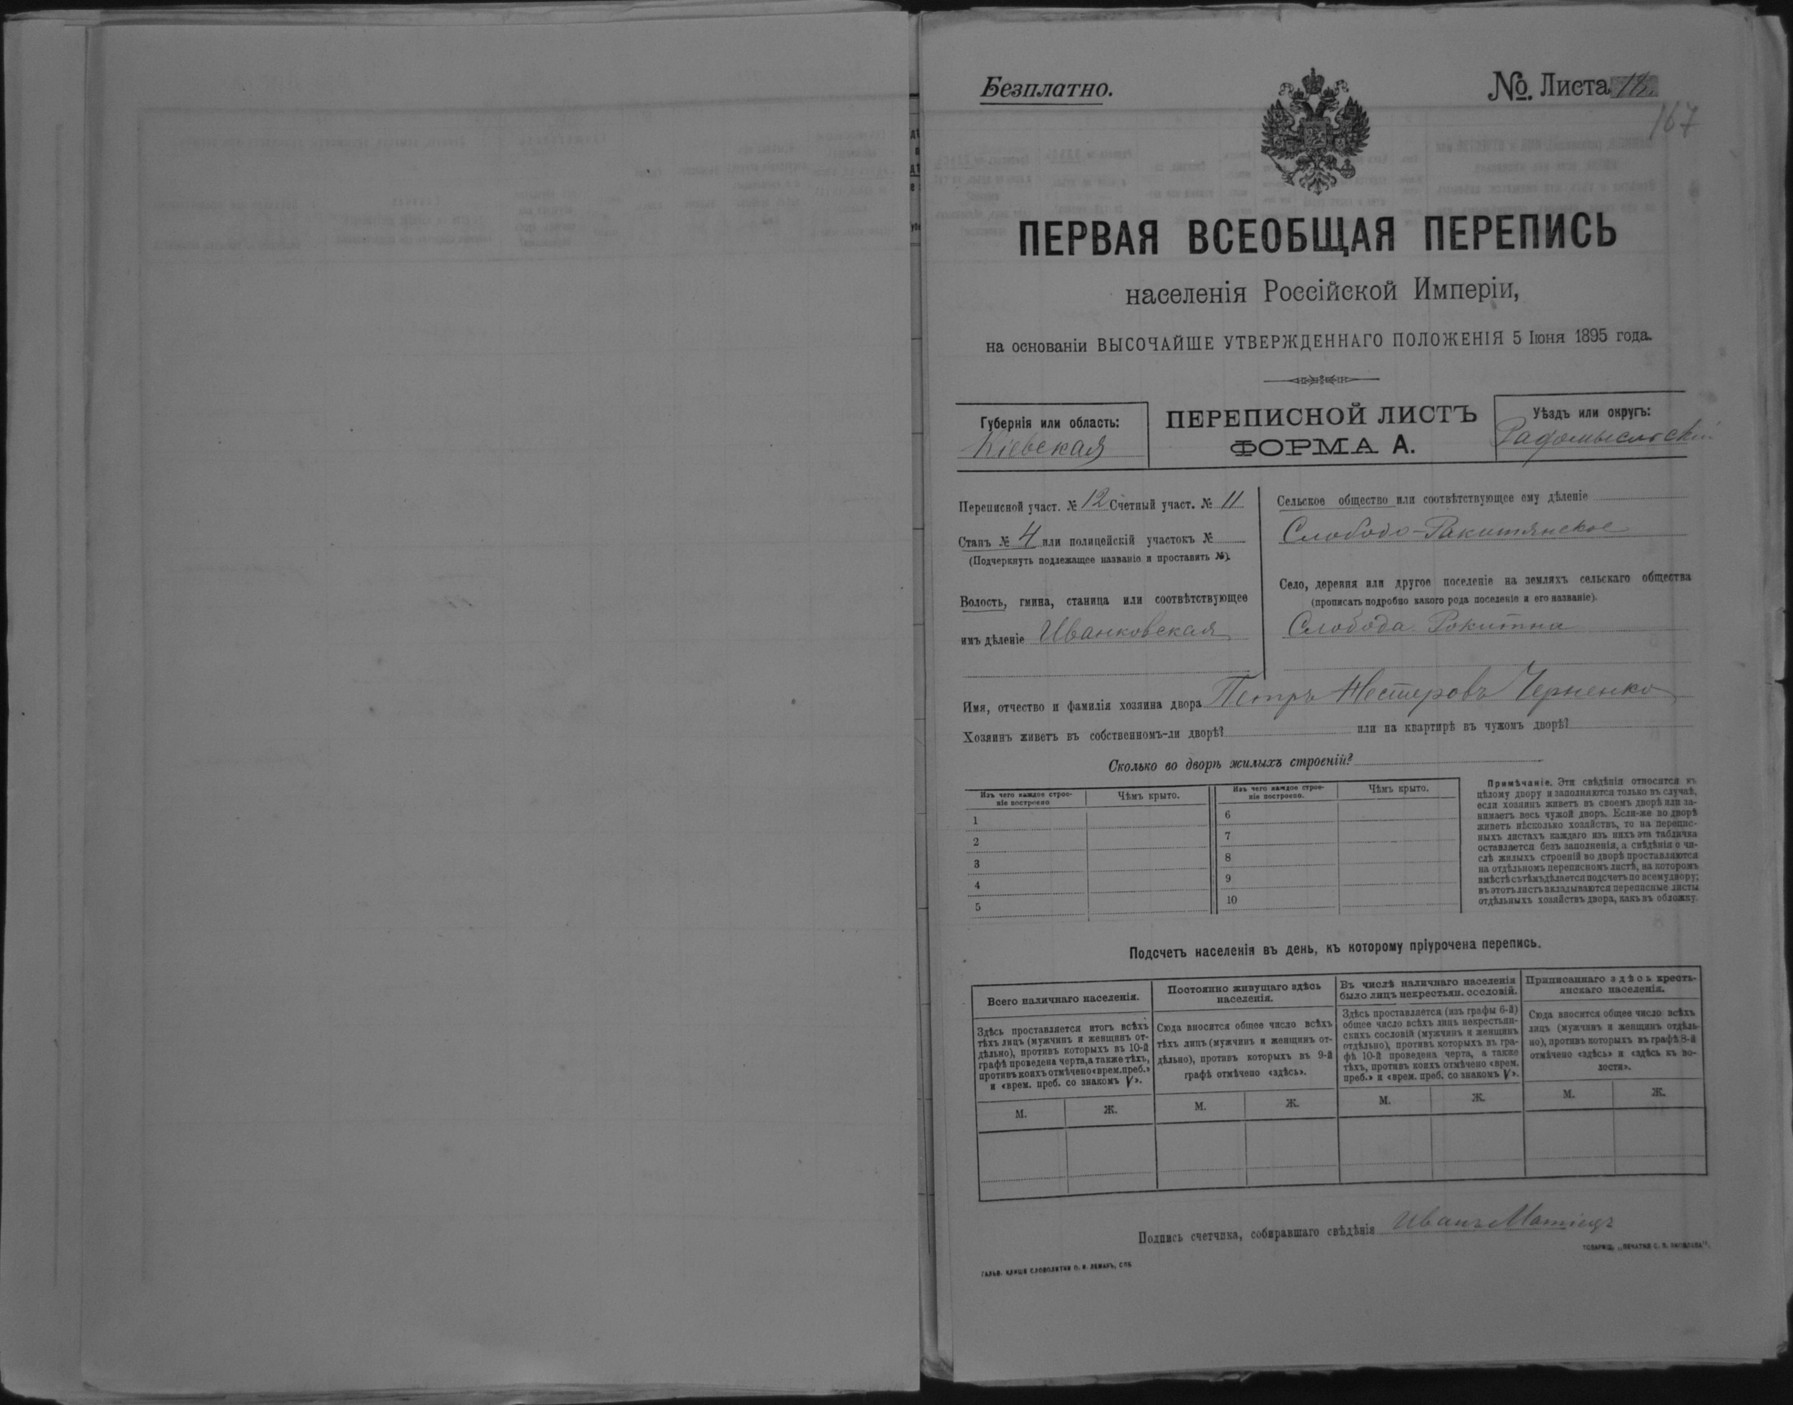 Безплатно.
№. Листа
167
ПЕРВАЯ ВСЕОБЩАЯ ПЕРЕПИСЬ
населенія Россійской Имперіи,
на основаніи ВЫСОЧАЙШЕ УТВЕРЖДЕННАГО ПОЛОЖЕНІЯ 5 Іюня 1895 года.
Губернія или область:
Кіевская
ПЕРЕПИСНОЙ ЛИСТЪ
ФОРМА А.
Уѣздъ или округъ:
Радомысльскій
Переписной участ. № 12 Счетный участ. № 11
Станъ № 4 или полицейскій участокъ №
(Подчеркнуть подлежащее названіе и проставить №).
Волость, гмина, станица или соотвѣтствующее
имъ дѣленіе Иванковская
Сельское общество или соотвѣтствующее ему дѣленіе
Слободо-Ракитянское
Село, деревня или другое поселеніе на земляхъ сельскаго общества
(прописать подробно какого рода поселеніе и его названіе).
Слобода Рокитна
Имя, отчество и фамилія хозяина двора Петръ Нестеровъ Черненко
Хозяинъ живетъ въ собственномъ-ли дворѣ? или на квартирѣ въ чужомъ дворѣ?
Сколько во дворѣ жилыхъ строеній?
Изъ чего каждое строе-
ніе построено
Чѣмъ крыто.
1
2
3
4
5
Изъ чего каждое строе-
ніе построено.
Чѣмъ крыто.
6
7
8
9
10
Примѣчаніе. Эти свѣдѣнія относятся къ
цѣлому двору и заполняются только въ случаѣ,
если хозяинъ живетъ въ своемъ дворѣ или за-
нимаетъ весь чужой дворъ. Если-же во дворѣ
живетъ нѣсколько хозяйствъ, то на перепис-
ныхъ листахъ каждаго изъ нихъ эта табличка
оставляется безъ заполненія, а свѣдѣнія о чи-
слѣ жилыхъ строеній во дворѣ проставляются
на отдѣльномъ переписномъ листѣ, на которомъ
вмѣстѣ съ тѣмъ дѣлается подсчетъ по всему двору;
въ этотъ листъ вкладываются переписные листы
отдѣльныхъ хозяйствъ двора, какъ въ обложку.
Подсчетъ населенія въ день, къ которому пріурочена перепись.
Всего наличнаго населенія.
Здѣсь проставляется итогъ всѣхъ
тѣхъ лицъ (мужчинъ и женщинъ от-
дѣльно), противъ которыхъ въ 10-й
графѣ проведена черта, а также тѣхъ,
противъ коихъ отмѣчено «врем. преб.»
и «врем. преб. со знакомъ V».
М.
Ж.
Постоянно живущаго здѣсь
населенія.
Сюда вносится общее число всѣхъ
тѣхъ лицъ (мужчинъ и женщинъ от-
дѣльно), противъ которыхъ въ 9-й
графѣ отмѣчено «здѣсь».
М.
Ж.
Въ числѣ наличнаго населенія
было лицъ некрестьян. сословій.
Здѣсь проставляется (изъ графы 6-й)
общее число всѣхъ лицъ некрестьян-
скихъ сословій (мужчинъ и женщинъ
отдѣльно), противъ которыхъ въ гра-
фѣ 10-й проведена черта, а также
тѣхъ, противъ коихъ отмѣчено «врем.
преб.» и «врем. преб. со знакомъ V».
М.
Ж.
Приписаннаго здѣсь кресть-
янскаго населенія.
Сюда вносится общее число всѣхъ
лицъ (мужчинъ и женщинъ отдѣль-
но), противъ которыхъ въ графѣ 8-й
отмѣчено «здѣсь» и «здѣсь къ во-
лости».
М.
Ж.
Подпись счетчика, собиравшаго свѣдѣнія Иванъ